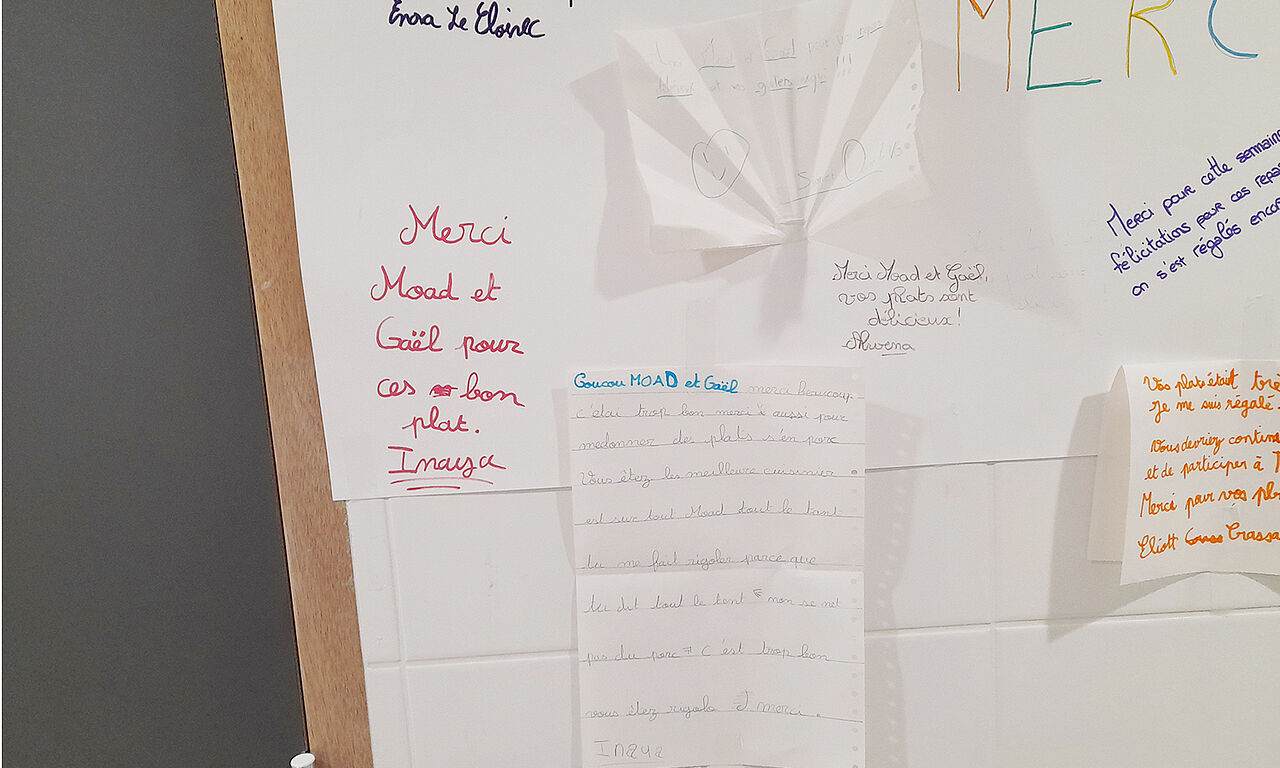 Enora Le
MERC
et Gaël pour vos repas
et vos
Merci
Moad et
Gaël pour
ces bon
plat.
Inaya
Merci Moad et Gaël,
vos plats sont
délicieux!
Merci pour cette semaine
félicitations pour ces repas
on s'est régalés encor
Coucou MOAD et Gaël merci beaucoup
c'étai trop bon merci aussi pour
medonner des plats s'en porc
Vous êtez les meilleure cuisinier
est sur tout Moad tout le tant
tu me fait rigoler parce que
tu dit tout le tent "non se net
pas du porc" c'est trop bon
vous êtez rigolo merci.
Inaya
Vos plats était trè
Je me suis régalé.
Vous devriez continu
et de participer à
Merci pour vos pla
Eliott